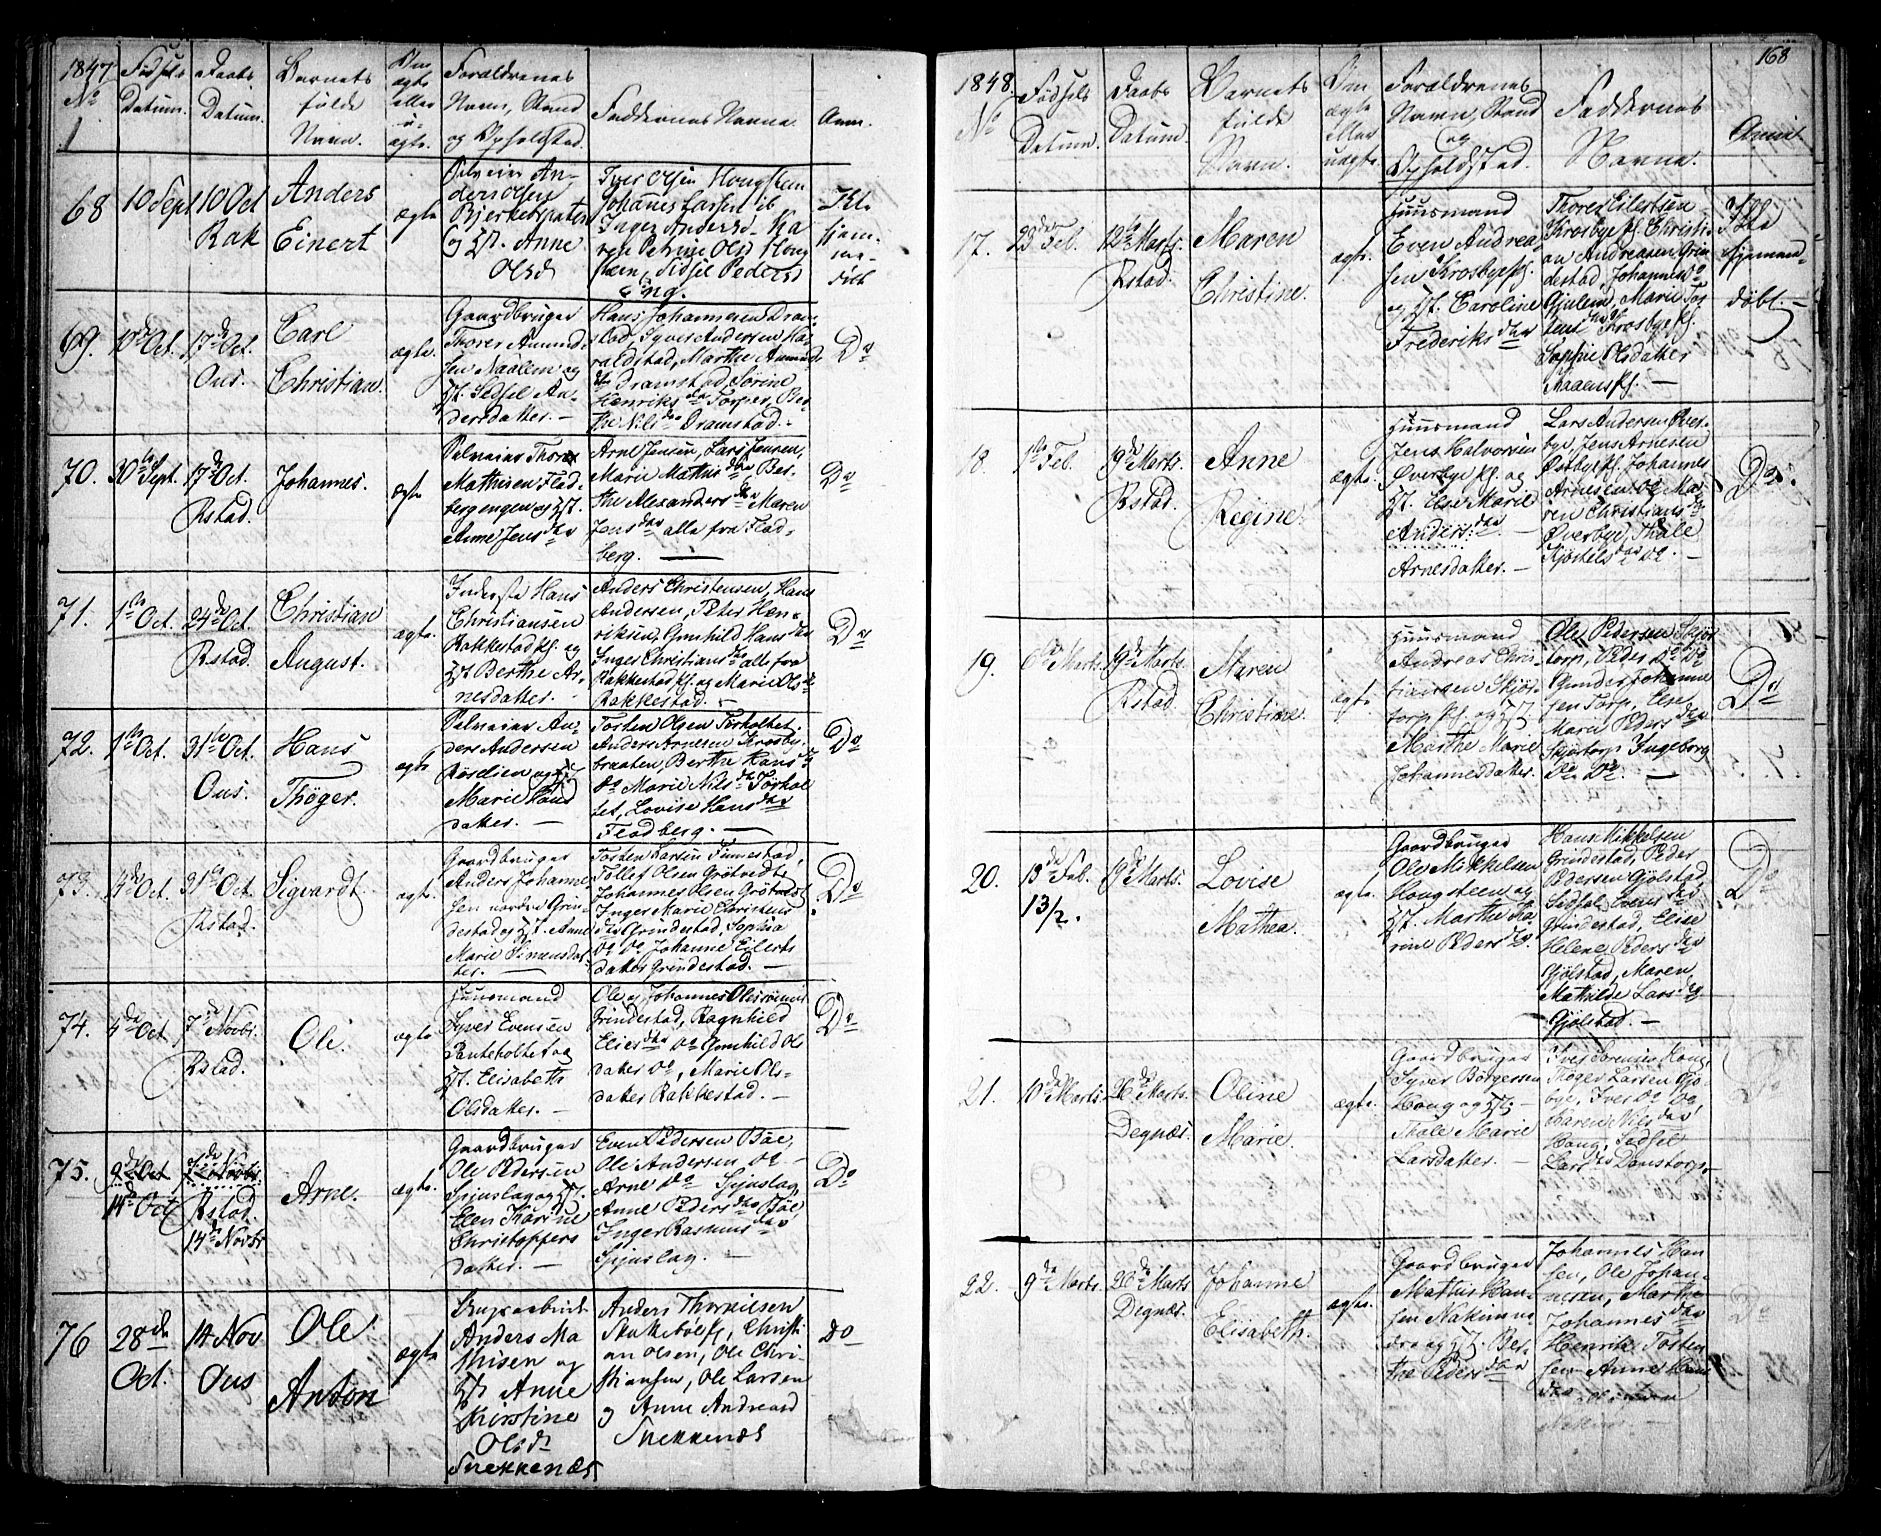 1847
No
Fødsels
Datum.
Daabs
Datum.
Barnets
fulde
Navn.
Om
ægte
eller
u-
ægte.
Forældrenes
Navn, Stand
og Opholdsted.
Faddernes Navne.
Anm.
68
10 Sept
10 Oct
Rak
Anders
Einert
ægte
Anders Olsen
og Hst. Anne
Olsd
Iver Olsen Hougsteen
Johannes Larsen ib
Inger Andersd Ka
ren Petrine Olsd Houg
steen, Sidsel Pedersd
Eng.
Ikke
hjem-
me-
døbt
69.
10de Oct.
17de Oct.
Ous.
Carl
Christian.
ægte.
Gaardbruger
Thorer Amund
sen Naalem og
Hst. Sidsel An-
dersdatter. —
Hans Johannesen Dram-
stad, Syver Andersen Ha-
raldstad, Marthe Amunds
da Dramstad, Sørine
Henriksda Torper, Ber-
the Nilsda Dramstad. -
Do
70.
30te Sept.
17de Oct.
Rstad.
Johannes.
ægte
Selveier Thore
Mathisen Flad-
bergengen og Hst.
Anne Jensdtr
Arne Jensen, Lars Jensen,
Marie Mathisdtr Ber-
the Alexandersdtr Maren
Jensdtr alle fra Flad-
berg. —
Do
71.
1ste Oct.
24de Oct.
Rstad.
Christian
August.
ægte.
Inderste Hans
Christiansen
Rakkestad Pl. og
Hst Berthe Ar-
nesdatter.
Anders Christensen, Hans
Andersen, Peter Hen-
riksen, Gunhild Hansdtr
Inger Christiansdtr alle fra
Rakkestad Pl. og Marie Olsd
Rakkestad. -
Do
72.
1ste Oct.
31te Oct.
Ous.
Hans
Thøger.
ægte
Selveier An-
ders Andersen
Marie Knud
datter. —
Tosten Olsen Torholtet.
Anders Arnesen Krosby-
braaten, Berthe Hansd
Do Marie Nilsda Torhol
tet, Lovise Hansdtr
Fladberg. —
Do
73.
4de Oct.
31te Oct.
Rstad.
Sigvardt.
ægte.
Gaardbruger
Anders Johanne
sen nordre Grin-
destad og Hst. Anne
Marie Simensdat-
ter. —
Tosten Larsen Finnestad,
Tollef Olsen Grøtvedt
Johannes Olsen Grøtvedt
Inger Marie Christens
dtr Grindestad, Sophia
Do Do Johanne Eilerts
datter Grindestad. —
Do
74.
4de Oct
7de Novbr.
Rstad.
Ole.
ægte
Huusmand
Syver Evensen
Panteholtet og
Hst. Elisabeth
Olsdatter. —
Ole og Johannes Olessønner
Grindestad, Ragnhild
Eliesdtr Do Gunhild Ols
datter Do, Marie Ols-
datter Rakkestad. —
Do
75.
9de Oct
14de Oct
7de Novbr.
Rstad.
14de Novbr
Arne.
ægte.
Gaardbruger
Ole Pedersen
Spinslag og Hst.
Elen Karine
Christophers
datter. —
Even Pedersen Bøe,
Ole Andersen Do —
Arne Do Spinslag,
Anne Pedersdtr Bøe,
Inger Rasmusdtr
Spinslag. —
Do
76
28de
Oct.
14 Nov
Ous
Ole
Anton
ægte
Anders Ma
thisen og
Hst Anne
Kirstine
Olsdtr
Snekkenæs
Anders Thorkilsen
Christi
an Olsen, Ole Chri-
stiansen, Ole Larsen
og Anne Andreasd
Snekkenæs
Do
168
1848.
No
Fødsels
Datum.
Daabs
Datum.
Barnets
fulde
Navn.
Om
ægte
eller
uægte.
Forældrenes
Navn, Stand
og
Opholdsted.
Faddernes
Navne.
Anm.
17.
23de Feb.
12te Marts.
Rstad.
Maren
Christine.
ægte.
Huusmand
Even Andrea-
sen Krosbye Pl.
og Hst. Caroline
Frederiksdtr
Thorer Eilertsen
Krosbye Pl. Christi-
an Andreasen Grin-
destad, Johannes Do
Gjulem, Marie Tos
tensdtr Krosbye Pl.
Sophie Olsdatter
Aaaens Pl. —
Ikke
hjemme-
døbt. —
18.
1ste Feb.
19de Marts.
Rstad.
Anne
Regine.
ægte.
Huusmand
Jens Halvorsen
Øverbye Pl. og
Hst. Else Marie
Andersdtr —
Arnesdatter. —
Lars Andersen Øver-
bye, Jens Arnesen
Østbye Pl. Johannes
Arnesen Do Ma-
ren Christiansdtr
Øverbye, Thale
Kjøstelsdtr Do. —
Do.
19.
6te Marts.
19de Marts.
Rstad.
Maren
Christine.
ægte.
Huusmand
Andreas Chris-
tiansen Skjør-
torp Pl. og Hst
Marthe Marie
Johannesdatter.
Ole Pedersen Skjør
torp, Peder Do Do
Gunder Johanne
sen Torp, Else
Marie Pedersdtr
Skjørtorp Ingeborg
Do Do. —
Do
20.
13de Feb.
13/2.
19de Marts.
Lovise
Mathea.
ægte.
Gaardbruger
Ole Mikkelsen
Hougsteen og
Hst. Marthe Ka-
rine Pedersdtr.
Hans Mikkelsen
Grindestad, Peder
Pedersen Gjølstad
Sidsel Evensdtr
Grindestad, Elise
Helene Pedersdtr
Gjølstad, Maren
Mathilde Larsdtr
Gjølstad. —
Do
21.
10de Marts.
26de Marts.
Degnæs.
Oline
Marie.
ægte.
Gaardbruger
Syver Børgersen
Houg og Hst. —
Thale Marie
Larsdatter. —
Iver Sørensen Houg,
Thøger Larsen Gjø-
bye, Iver Do Do
Karen Nilsdtr
Houg, Sidsel
Larsdtr Danstorp. —
Do
22.
9de Marts.
26de Marts
Degnæs.
Johanne
Elisabeth.
ægte.
Gaardbruger
Mathis Han-
sen Nakim
og Hst. Ber-
the Pedersdtr
Johannes Han-
sen, Ole Johan-
nesen, Marthe
Johannesdtr
Henrik Tosten
sen Anne Hans
dtr
Do